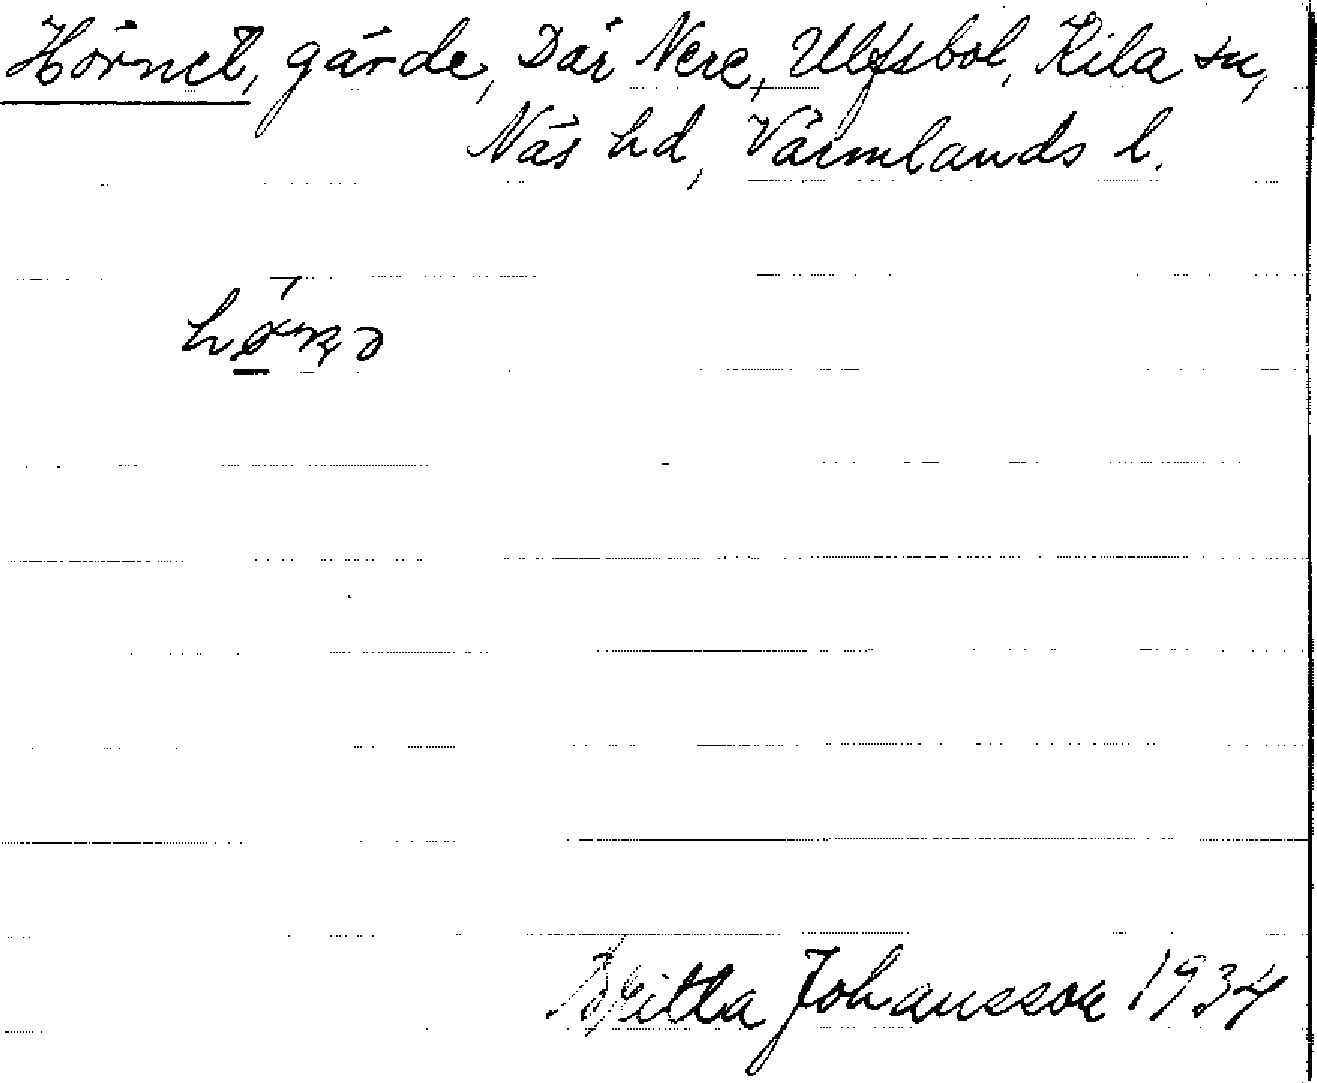 Hörnet, gärde, Där Nere, Ulfsbol, Kila sn,
Näs hd, Värmlands l.
Britta Johansson 1934